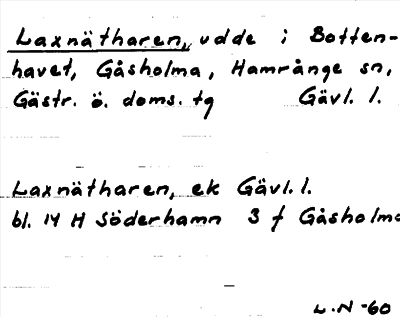 Laxnätharen, udde i Botten-
havet, Gåsholma, Hamrånge sn,
Gästr. ö. doms. tg Gävl. l.
Laxnätharen, ek Gävl. l.
bl. 14 H Söderhamn 3 f Gåsholma
L.N-60